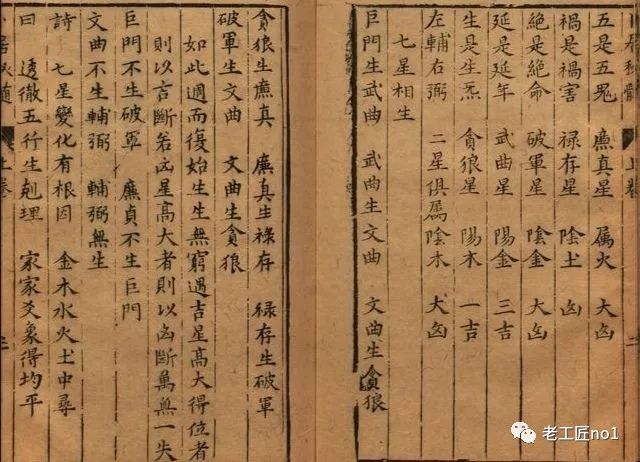 上卷
五是五鬼 廉真星 属火 大凶
禍是禍害 禄存星 陰土 凶
絶是絶命 破軍星 陰金 大凶
延是延年 武曲星 陽金 三吉
生是生炁 貪狼星 陽木 一吉
左輔右弼 二星俱属陰木 大凶
七星相生
巨門生武曲 武曲生文曲 文曲生貪狼
貪狼生廉真 廉真生禄存 禄存生破軍
破軍生文曲 文曲生貪狼
如此週而復始生生無窮遇吉星高大得位者
則以言斷若凶星高大者則以凶斷萬無一失
巨門不生破軍 廉貞不生巨門
文曲不生輔弼 輔弼無生
詩 七星變化有根因 金木水火土中尋
曰 透徹五行生剋理 家家爻象得均平
上卷
老工匠no1